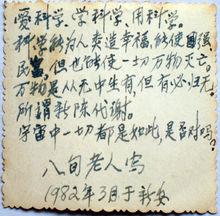 爱科学、学科学、用科学。
科学能为人类造幸福，能使国强
民富，但也能使一切万物灭亡。
万物是从无中生有，但有必归无。
所谓新陈代谢。
宇宙中一切都是如此，是否对吗？
八旬老人写
1982年3月于新安